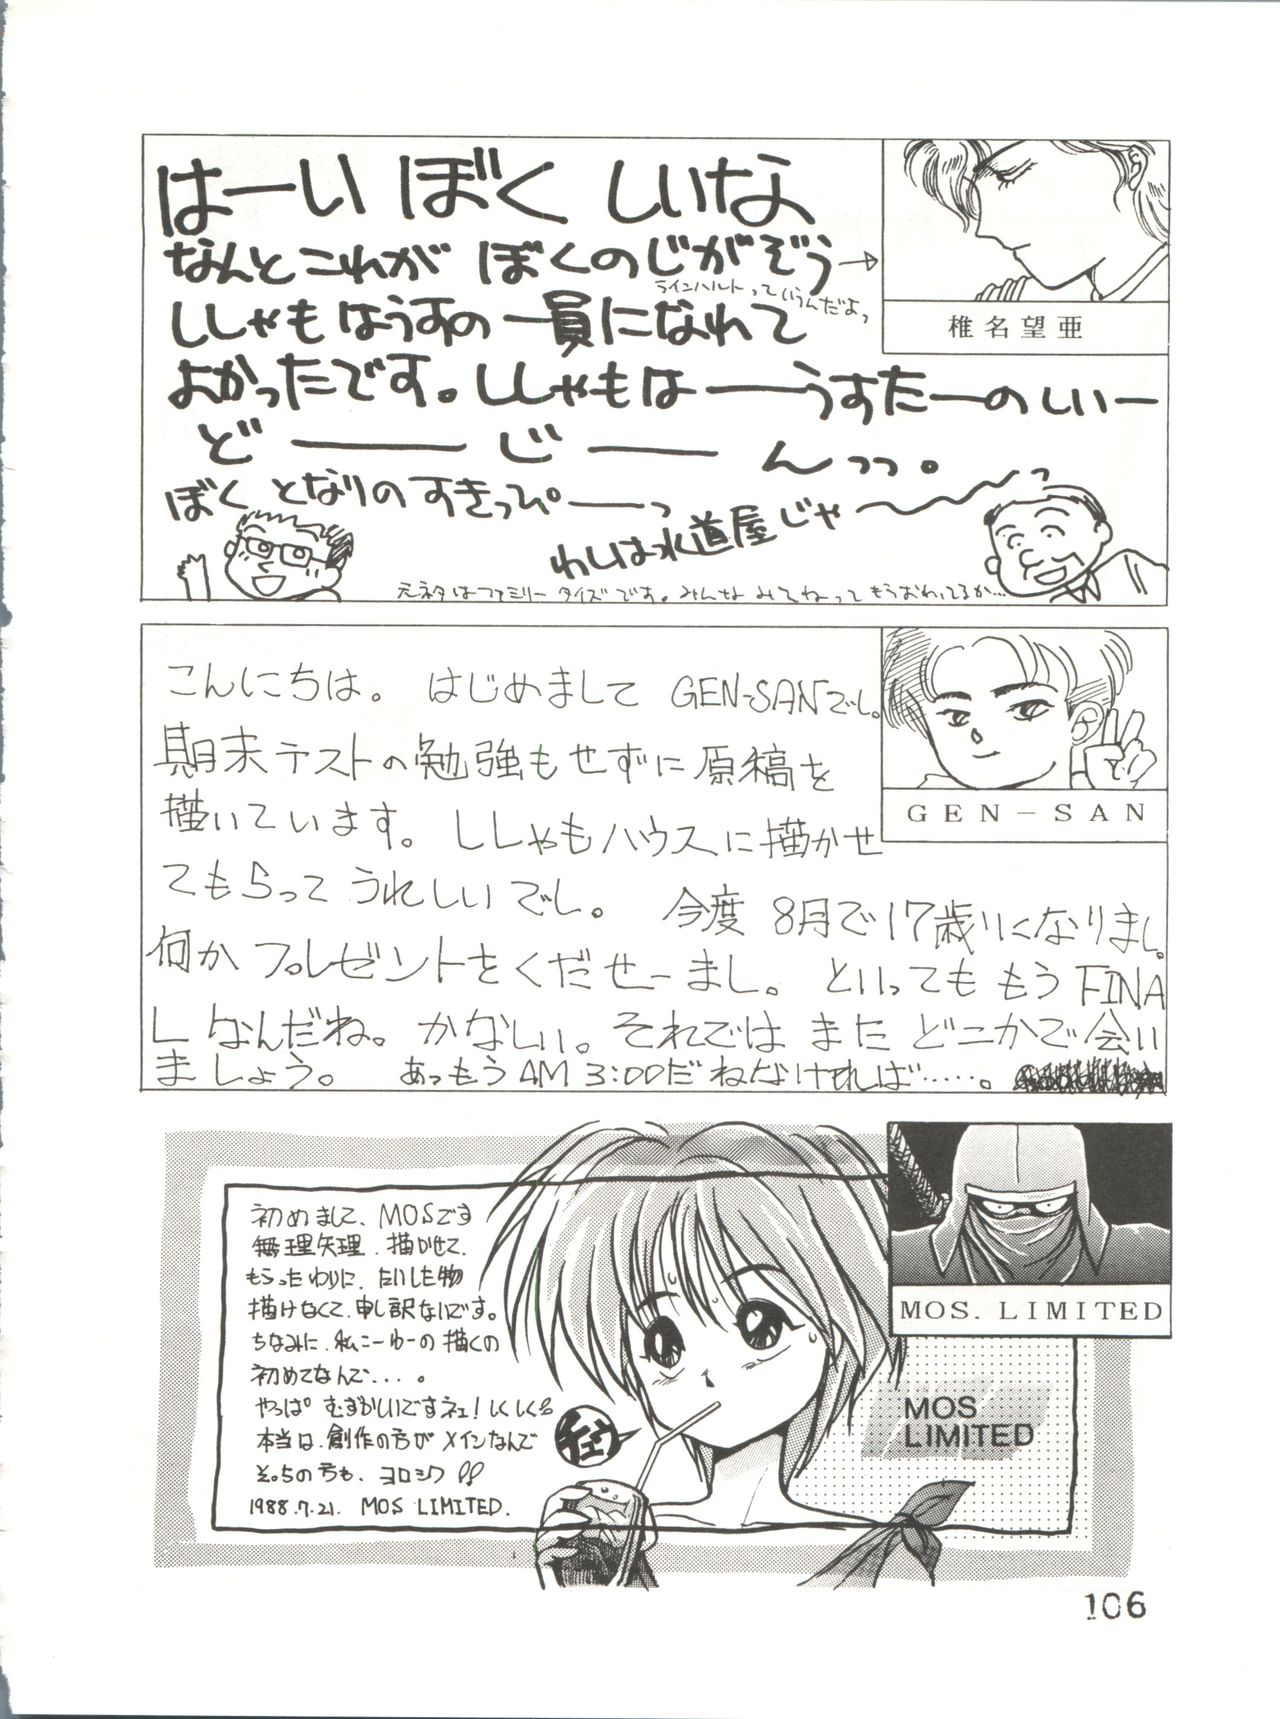 はーい ぼく しいな
なんとこれが ぼくのじがぞう→
ラインハルトって いうんだよっ
ししゃもはうすの 一員になれて
よかったです。ししゃもは――うすたーのしいー
ど――じ――んっっ。
ぼく となりのすきっぴ――っ
わしは水道屋じゃ〜〜っ
元ネタはファミリータイズです。みんな みてねって もうおわってるか…
椎名望亜
こんにちは。 はじめまして GEN-SANでし。
期末テストの勉強もせずに原稿を
描いています。ししゃもハウスに描かせ
てもらって うれしいでし。 今度 8月で17歳りになりまし。
何か プレゼントをくだせーまし。 といっても もう FINA
L なんだね。かなしい。それでは また どこかで会い
ましょう。 あっもう AM 3:00だ ねなければ……。
GEN-SAN
初めまして、MOSです
無理矢理、描かせて、
もらったわりに、たいした物
描けなくて、申し訳ないです。
ちなみに、私こーゆーの描くの
初めてなんで....。
やっぱ むずかしいですネェ! しくしく
本当は、創作の方が メインなんで
そっちの方も、ヨロシク!!
1988.7.21. MOS LIMITED.
チュウ
MOS. LIMITED
MOS
LIMITED
106